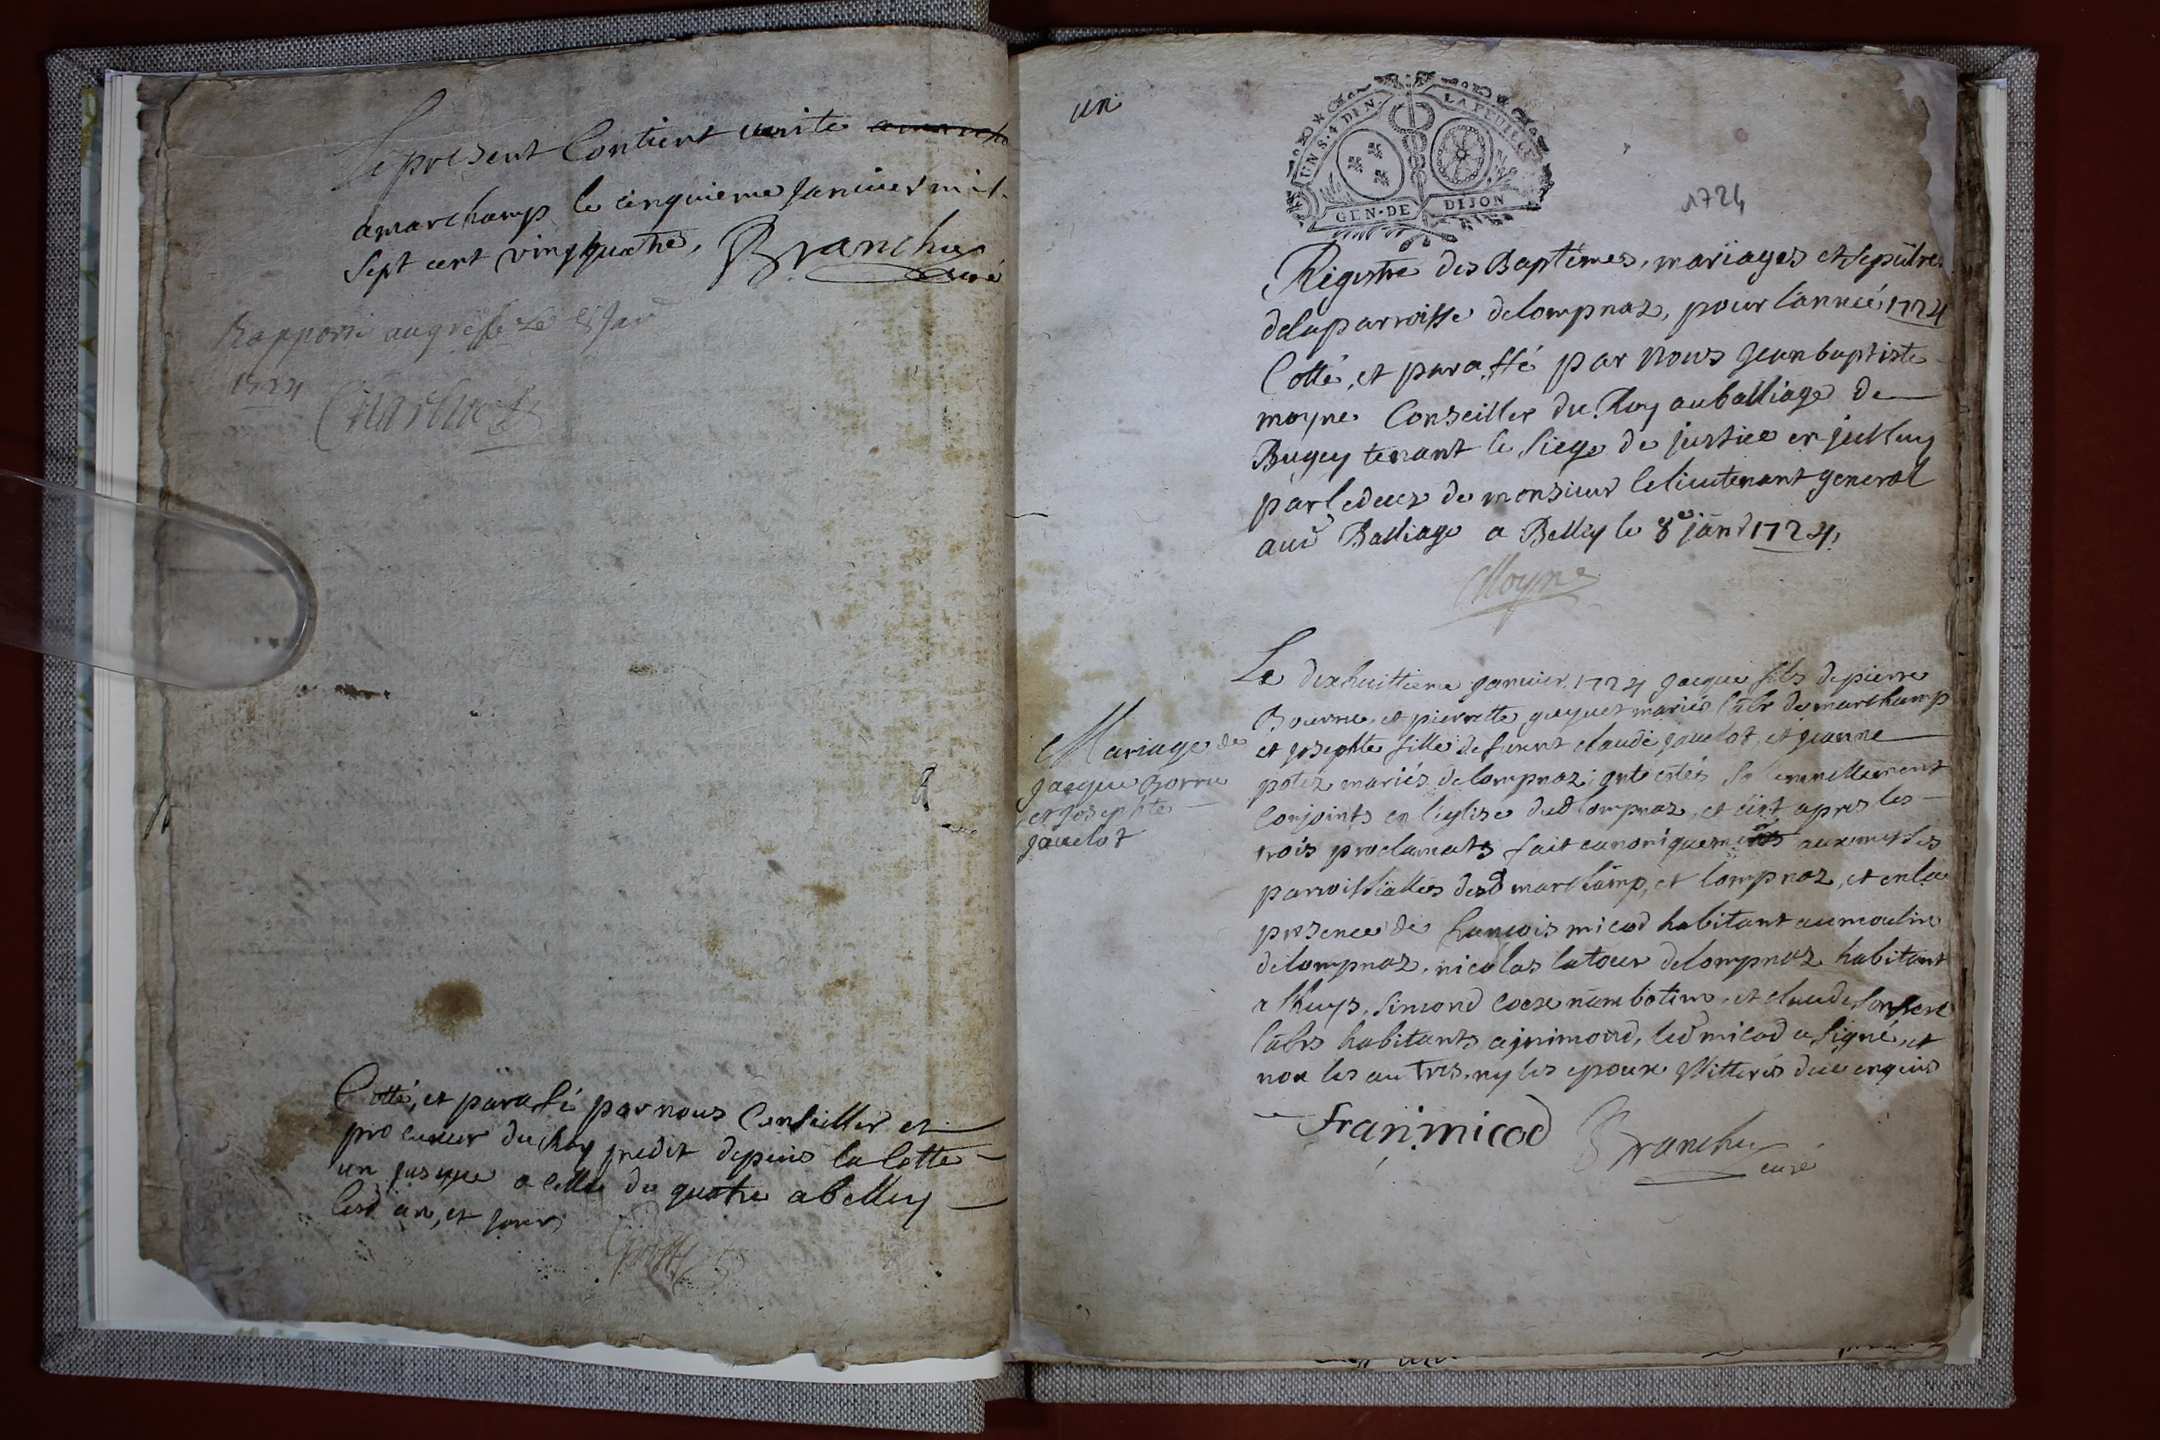 Le present Contient verité
a marchamp le cinquieme Janvier mil
sept cent vingtquatre, Branchu
curé
Rapporté au greffe le 8 Jan
1724
Cotté, et paraffé par nous Conseiller et
procureur du Roy predit depuis la Cotte
un jusque a celle de quatre a belley
lesd an, et jour,
un
UN S. 4 DEN. LA FEUILLE
GEN. DE DIJON
1724
Registre des Baptêmes, mariages et sepultre
de la parroisse de lompnaz, pour l'année 1724
Cotté, et paraffé par Nous Jean baptiste
moyne Conseiller du Roy au balliage de
Bugey tenant le siege de justice en
par le deces de monsieur le lieutenant general
aud Balliage a Belley le 8e janr 1724,
Moyne
Mariage de
Jacque Borne
et Josephte
Javelot
Le dixhuittieme Janvier 1724 Jacque fils de pierre
Bourne, et pierrette mariés labr de marchamp
et Josephte fille de furent claude Javelot, et jeanne
mariés de lompnaz, ont estés solemnellement
Conjoints en l'eglise dud lompnaz, et c'est apres les
trois proclamats fait canoniquement aux messes
parroissialles desd marchamp, et lompnaz, et en la
presence de francois micod habitant au moulin
de lompnaz, nicolas latour de lompnaz habitant
a lhuys, simond et claude
labrs habitants a led micod a signé, et
non les autres, ny les epoux illitterés de ce enquis
Fran. micod Branchu
curé